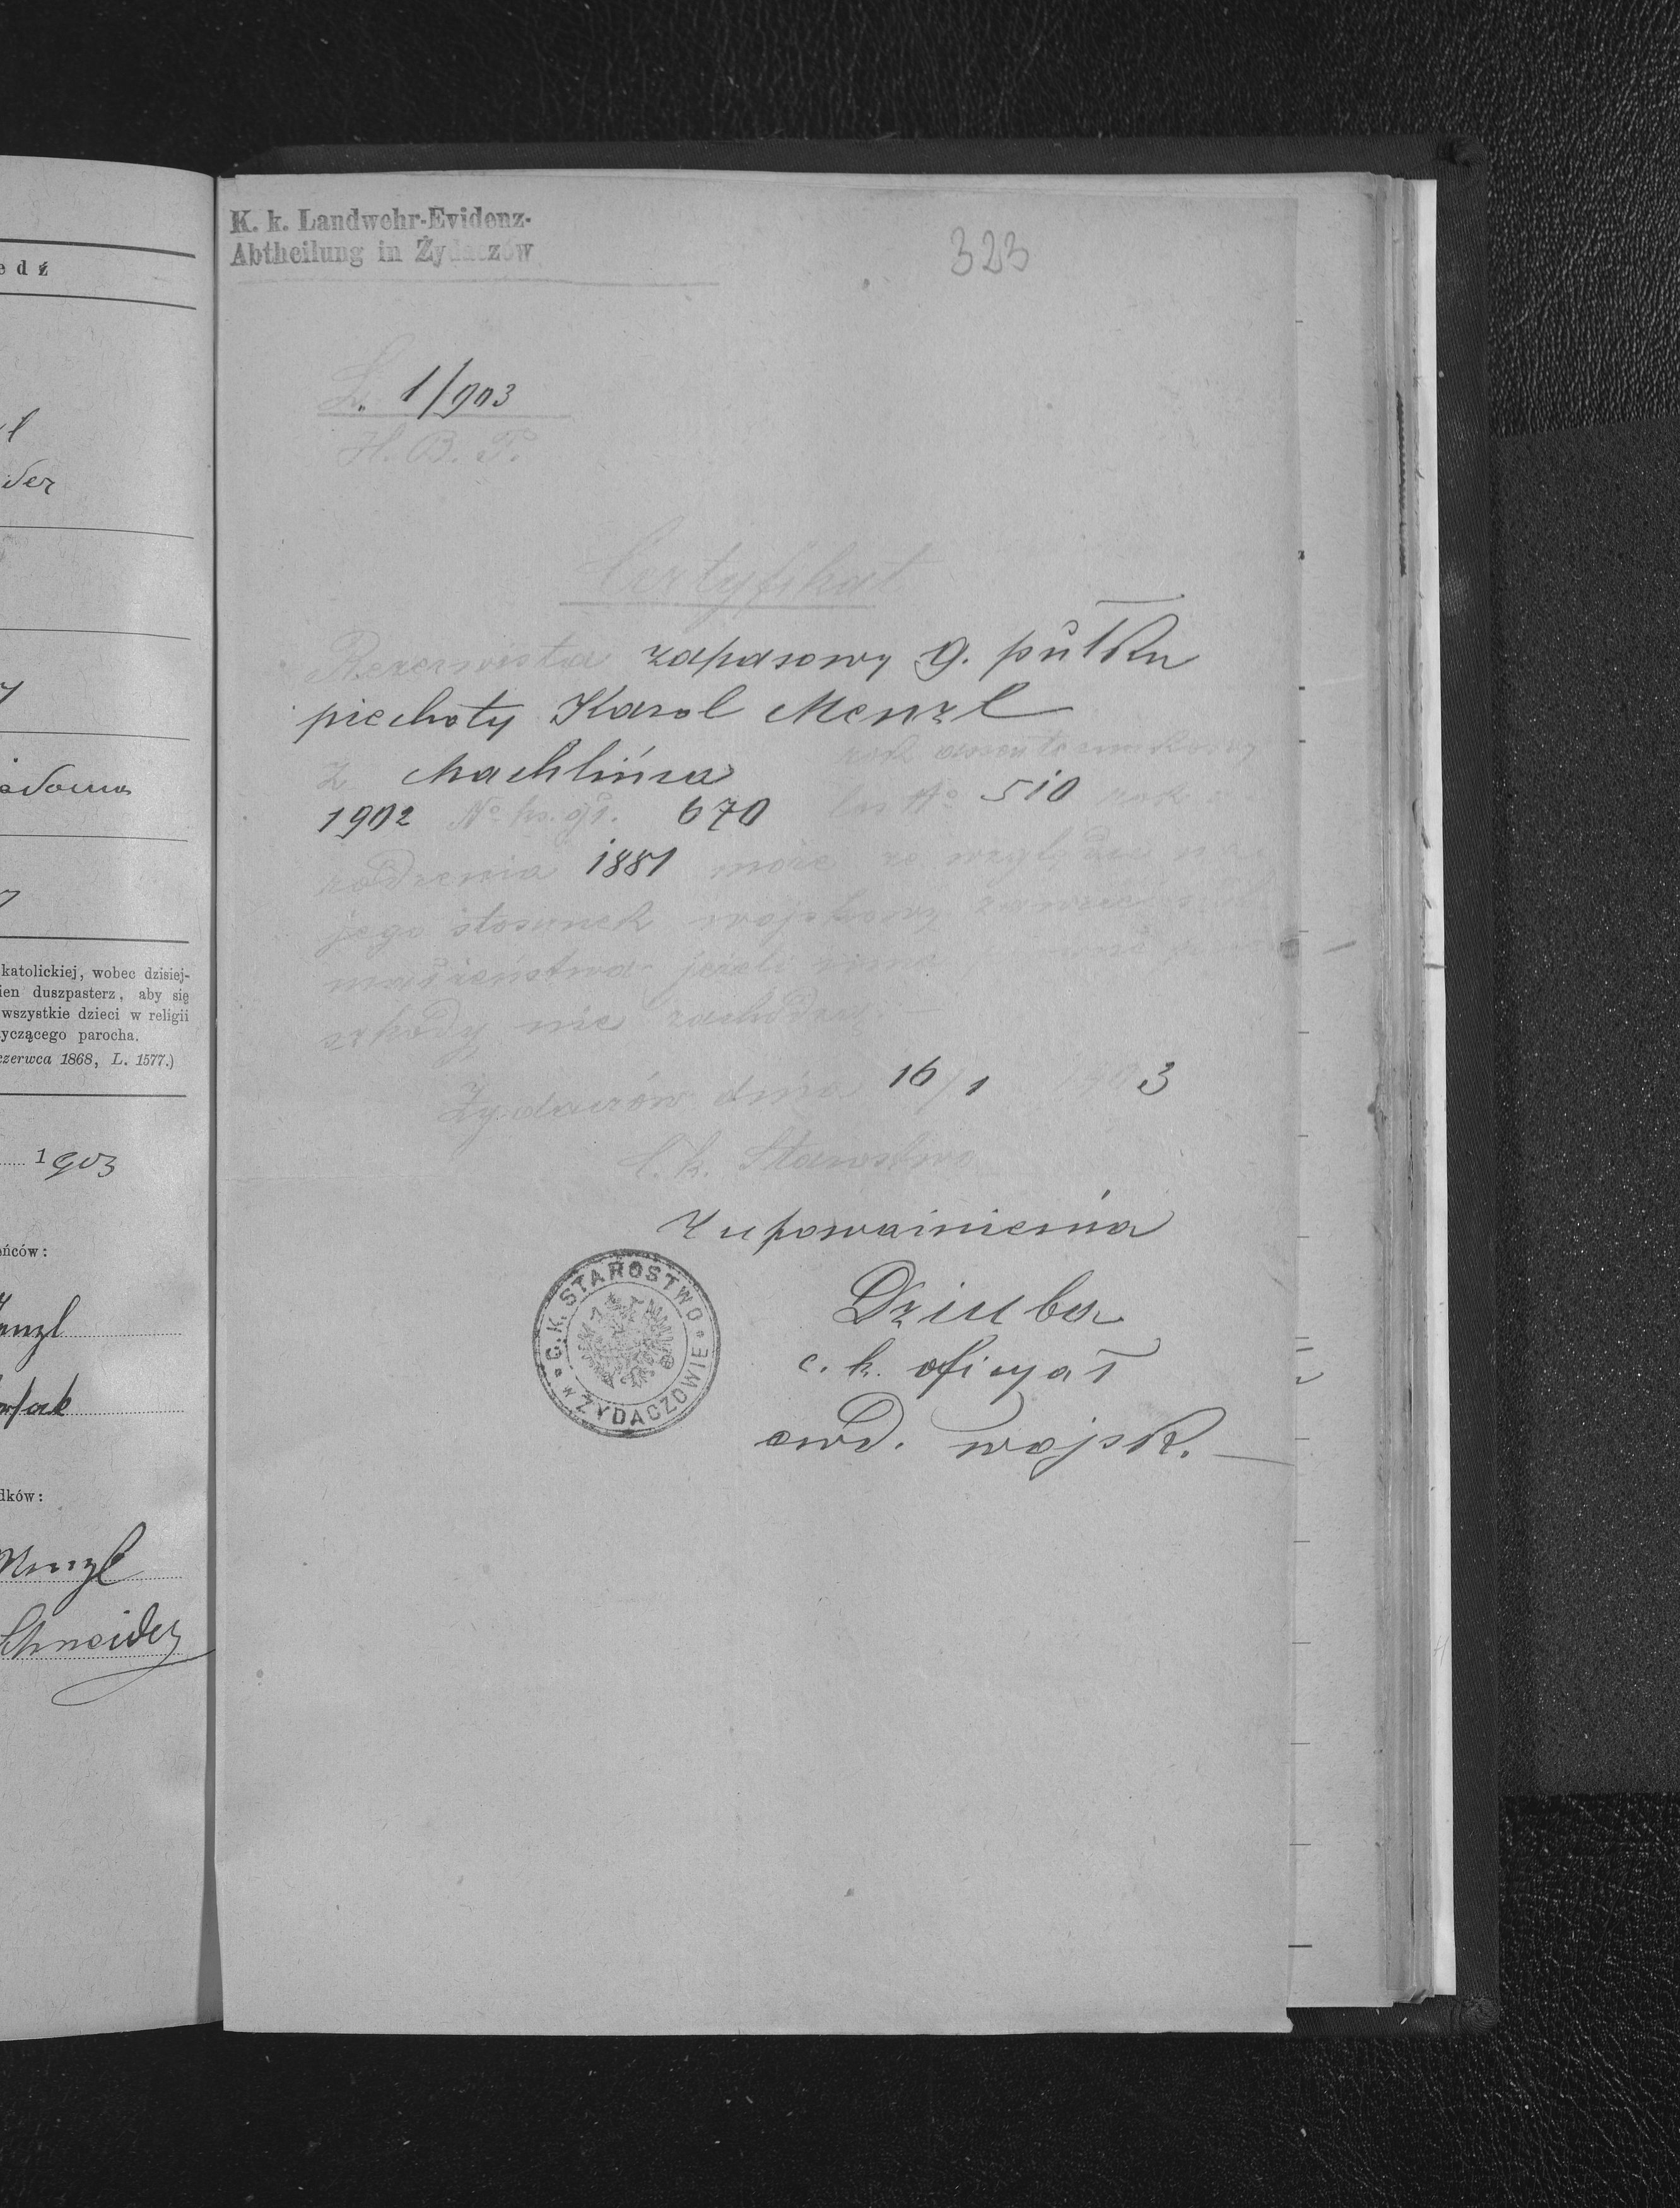 edź
l
der
adoma
katolickiej, wobec dzisiej-
ien duszpasterz, aby się
wszystkie dzieci w religii
yczącego parocha.
czerwca 1868, L. 1577.)
1903
eńców:
enzl
dków:
Menzl
Schneider
K. k. Landwehr-Evidenz-
Abtheilung in Żydaczów
323
L. 1/903
H. B. P.
Certyfikat
Rezerwista zapasowy 9. pułku
piechoty Karol Menzl
z Machlińca rok asenterunkowy
1902 No ks. gł. 670 los No 510 rok u
rodzenia 1881 może ze względu na
jego stosunek wojskowy zawrzeć
małżeństwo jeżeli inne
szkody nie zachodzą
Żydaczów dnia 16/1 1903
C. k. Starostwo
Z upoważnienia
Dziuba
c. k. oficyał
ewd. wojsk.
C. K. STAROSTWO
w ŻYDACZOWIE